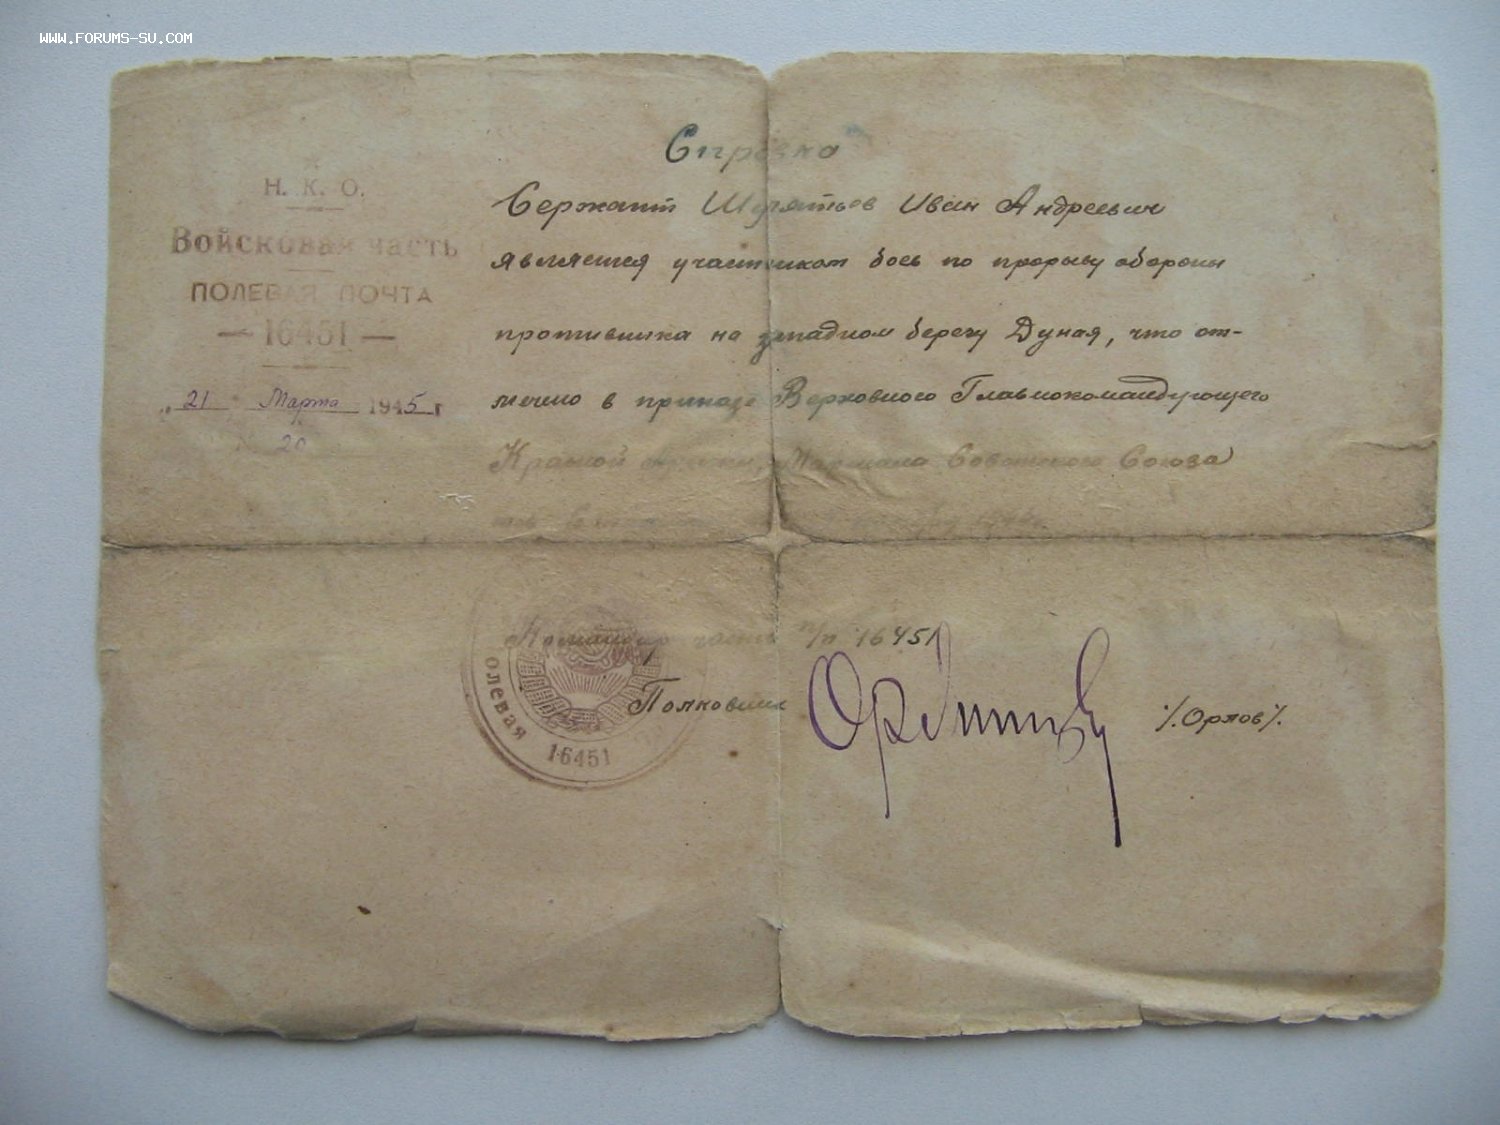 WWW.FORUMS-SU.COM
Н. К. О.
Войсковая часть
ПОЛЕВАЯ ПОЧТА
— 16451 —
„21" Марта 1945 г
20
Справка
Сержант Иван Андреевич
является участником боев по прорыву обороны
противника на западном берегу Дуная, что от-
мечено в приказе Верховного Главнокомандующего
Красной Армии, Маршала Советского Союза
Командир части п/п 16451
Полковник /Орлов/.
олевая 16451